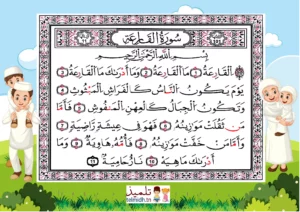 سورة القارعة
بسم الله الرحمن الرحيم
القارعة ① ما القارعة ② وما أدرىك ما القارعة ③
يوم يكون الناس كالفراش المبثوث ④
وتكون الجبال كالعهن المنفوش ⑤ فأما
من ثقلت موزينه ⑥ فهو في عيشة راضية ⑦
وأما من خفت موزينه ⑧ فأمه هاوية ⑨ وما
أدرىك ما هيه ⑩ نار حامية ⑪
تلميذ
telmidh.tn